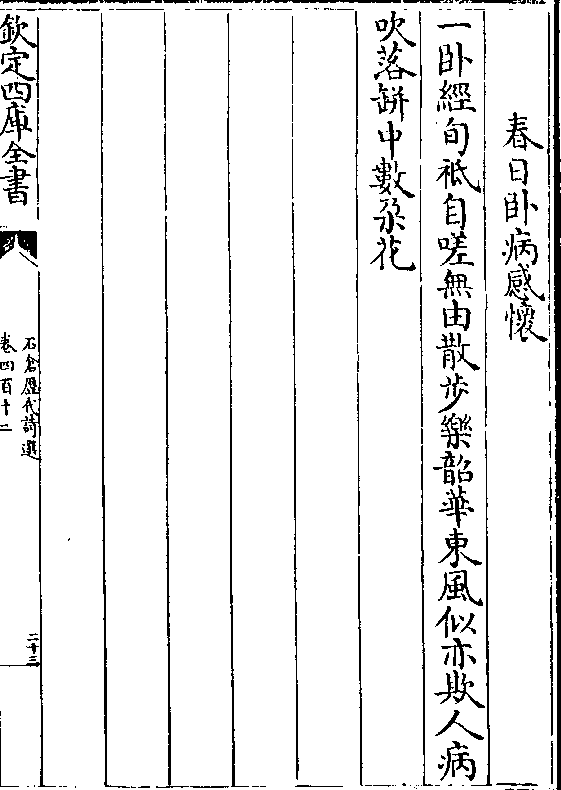 春日卧病感懷
一卧經旬祗自嗟無由散步樂韶華東風似亦欺人病
吹落缾中數朶花
欽定四庫全書
石倉歷代詩選
卷四百十二
二十三